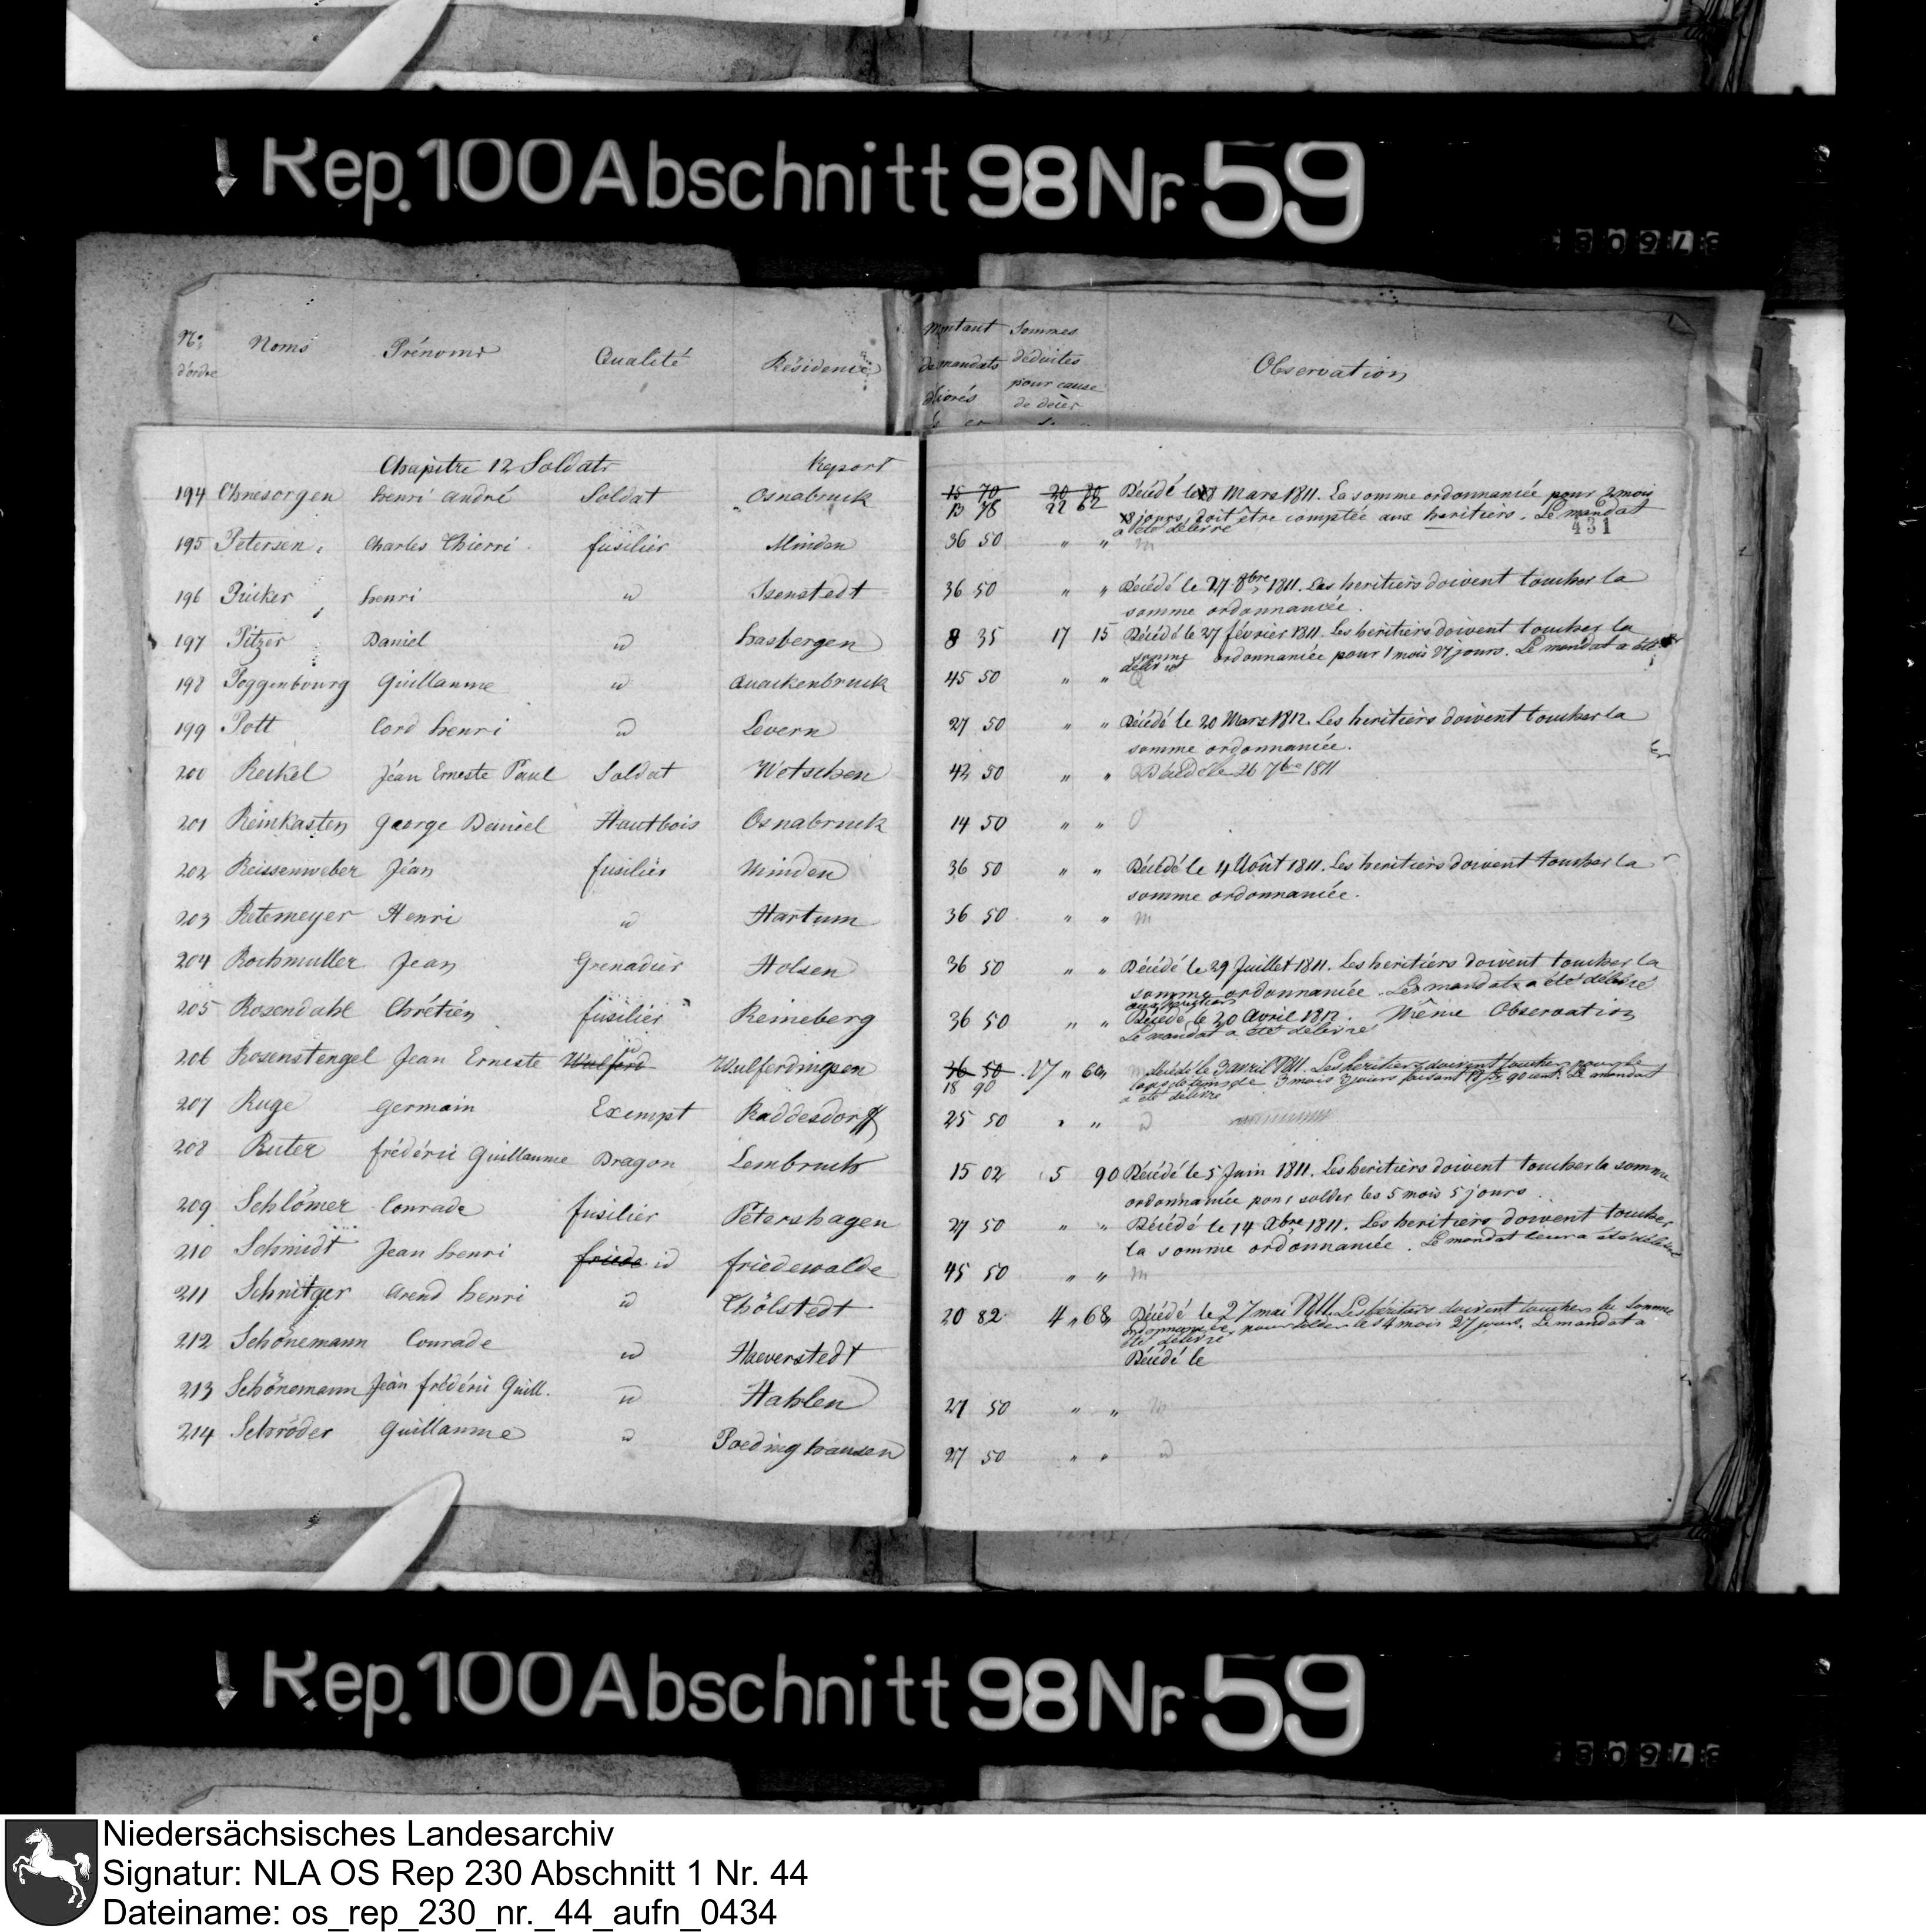 Rep. 100 Abschnitt 98 Nr. 59
No. d'ordre Noms Prénoms Qualité Résidence Montant des mandats délivrés Sommes déduites pour cause de décès Observation
Chapitre 12 Soldats Report
194 Ohnesorgen henri andré Soldat Osnabruck 15 70 20 20 Décédé le Mars 1811. La somme ordonnancée pour 2 mois
13 78 22 62 jours, doit être comptée aux heritiers. Le mandat
a été délivré
431
195 Petersen Charles Thierri fusilier Minden 36 50 " " m
196 Pücker henri id Isenstedt 36 50 " " Décédé le 27 8bre 1811. Les heritiers doivent toucher la
somme ordonnancée.
197 Pitzer Daniel id hasbergen 8 35 17 15 Décédé le 27 février 1811. Les heritiers doivent toucher la
somme ordonnancée pour 1 mois 27 jours. Le mandat a été
délivré
198 Poggenbourg Guillaume id Quackenbruck 45 50 " " Q
199 Pott Cord henri id Levern 27 50 " " Décédé le 20 Mars 1812. Les heritiers doivent toucher la
somme ordonnancée.
200 Reckel Jéan Erneste Paul Soldat Wetschen 42 50 " " Décédé le 26 7bre 1811
201 Reinkasten George Daniel Hautbois Osnabruck 14 50 " " O
202 Reissenweber Jéan fusilier Minden 36 50 " " Décédé le 4 Août 1811. Les heritiers doivent toucher la
somme ordonnancée.
203 Retemeyer Henri id Hartum 36 50 " " m
204 Rochmuller Jean Grenadier Holsen 36 50 " " Décédé le 29 Juillet 1811. Les heritiers doivent toucher la
somme ordonnancée. Le mandat a été délivré
aux heritiers
205 Rosendahl Chrétien fusilier Reineberg 36 50 " " Décédé le 20 Avril 1812. Même Observation
Le mandat a été délivré
206 Rosenstengel Jean Erneste Wulferd id Wulferdingsen 36 50 17 " 60 " Décédé le 3 avril 1811. Les heritiers doivent toucher pour le
18 90 laps de tems de 3 mois 3 jours faisant 18 frs 90 cent. Le mandat
a été délivré
207 Ruge Germain Exempt Raddesdorff 25 50 " " id
208 Ruter frédéric Guillaume Dragon Lembruch 15 02 5 90 Décédé le 5 Juin 1811. Les heritiers doivent toucher la somme
ordonnancée pour solder les 5 mois 5 jours.
209 Schlömer Conrade fusilier Petershagen 27 50 " " Décédé le 14 Xbre 1811. Les heritiers doivent toucher
la somme ordonnancée. Le mandat leur a été délivré
210 Schmidt Jean henri friede id friedewalde 45 50 " " m
211 Schnitger Arend henri id Thölstedt 20 82 4 " 68 " Décédé le 27 mai 1811. Les héritiers doivent toucher la somme
ordonnancée pour solder les 4 mois 27 jours. Le mandat a
été délivré
212 Schönemann Conrade id Haeverstedt Décédé le
213 Schönemann Jeàn frédéric Guill. id Hahlen 27 50 " "
214 Schröder Guillaume id Poedinghausen 27 50 " " id
Rep. 100 Abschnitt 98 Nr. 59
Niedersächsisches Landesarchiv
Signatur: NLA OS Rep 230 Abschnitt 1 Nr. 44
Dateiname: os_rep_230_nr._44_aufn_0434